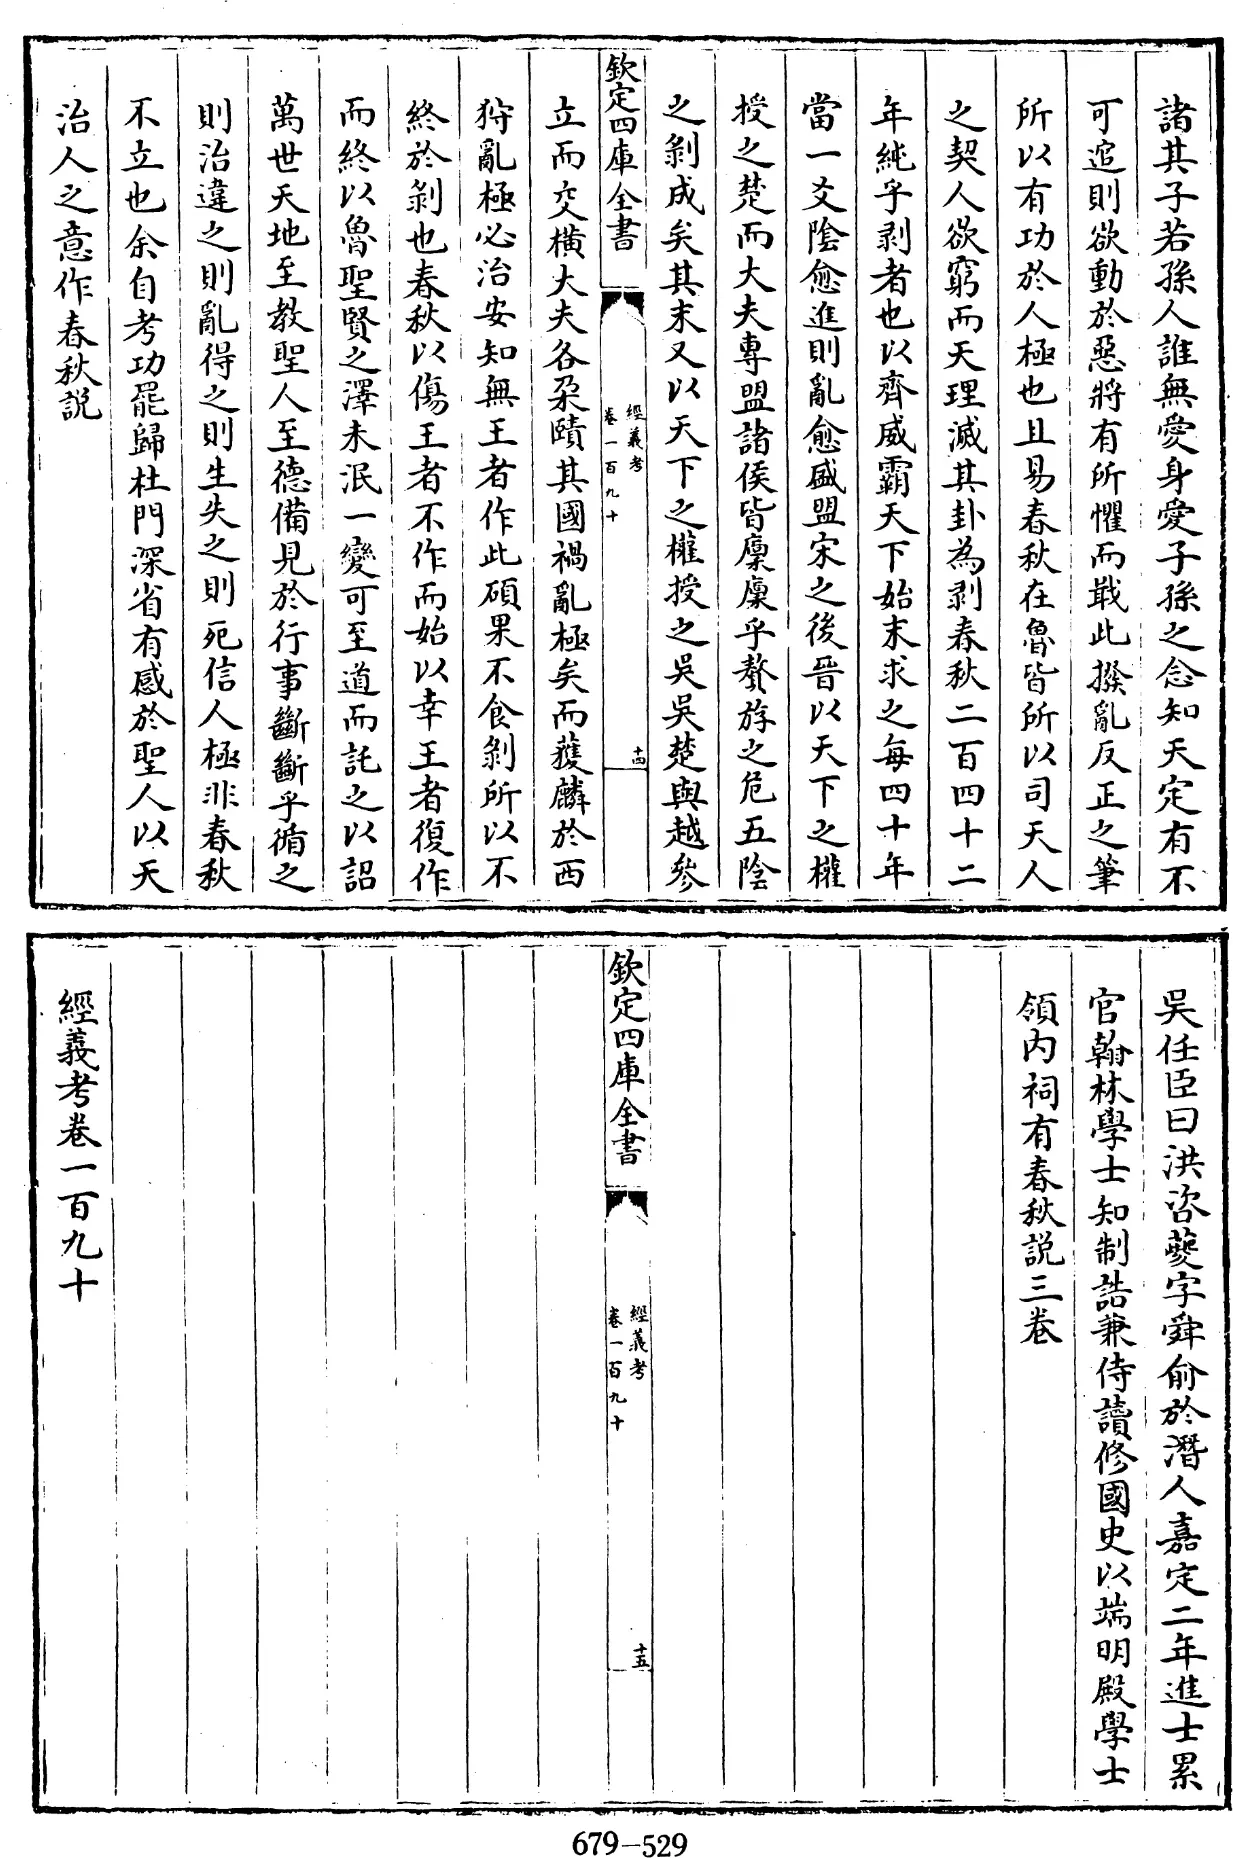 諸其子若孫人誰無愛身愛子孫之念知天定有不
可逭則欲動於惡將有所懼而戢此撥亂反正之筆
所以有功於人極也且易春秋在魯皆所以司天人
之契人欲窮而天理滅其卦為剥春秋二百四十二
年純乎剥者也以齊威霸天下始末求之每四十年
當一爻陰愈進則亂愈盛盟宋之後晉以天下之權
授之楚而大夫專盟諸侯皆廩廩乎贅斿之危五陰
之剝成矣其末又以天下之權授之吳吳楚與越參
欽定四庫全書
經義考
卷一百九十
十四
立而交橫大夫各朶頤其國禍亂極矣而蒦麟於西
狩亂極必治安知無王者作此碩果不食剝所以不
終於剝也春秋以傷王者不作而始以幸王者復作
而終以魯聖賢之澤未泯一變可至道而託之以詔
萬世天地至教聖人至德備見於行事斷斷乎循之
則治違之則亂得之則生失之則死信人極非春秋
不立也余自考功罷歸杜門深省有感於聖人以天
治人之意作春秋説
吳任臣曰洪咨夔字舜俞於潛人嘉定二年進士累
官翰林學士知制誥兼侍讀修國史以端明殿學士
領内祠有春秋説三卷
欽定四庫全書
經義考
卷一百九十
十五
經義考卷一百九十
679-529